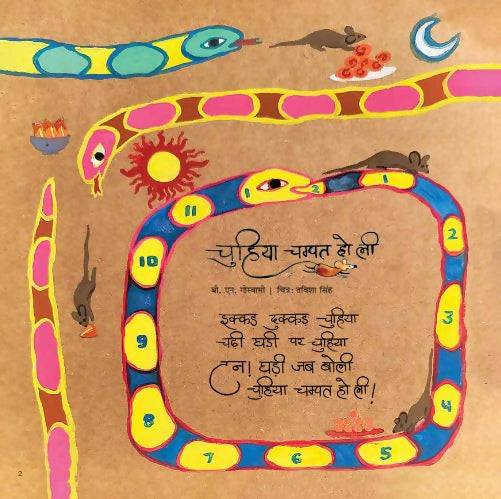 चुहिया चम्पत हो ली
बी. एन. गोस्वामी | चित्र: तविशा सिंह
इक्कड़ दुक्कड़ चुहिया
चढ़ी घड़ी पर चुहिया
टन! घड़ी जब बोली
चुहिया चम्पत हो ली!
1 2
1
2
3
4
5
6
7
8
9
10
11
2